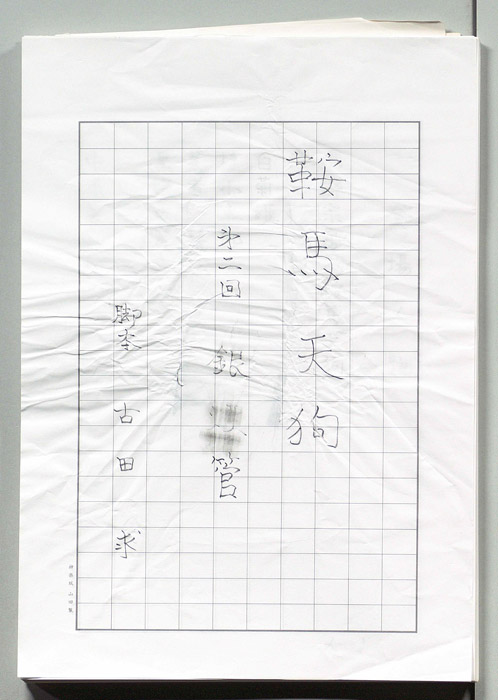 鞍馬天狗
第二回 銀 管
脚本 古田 求